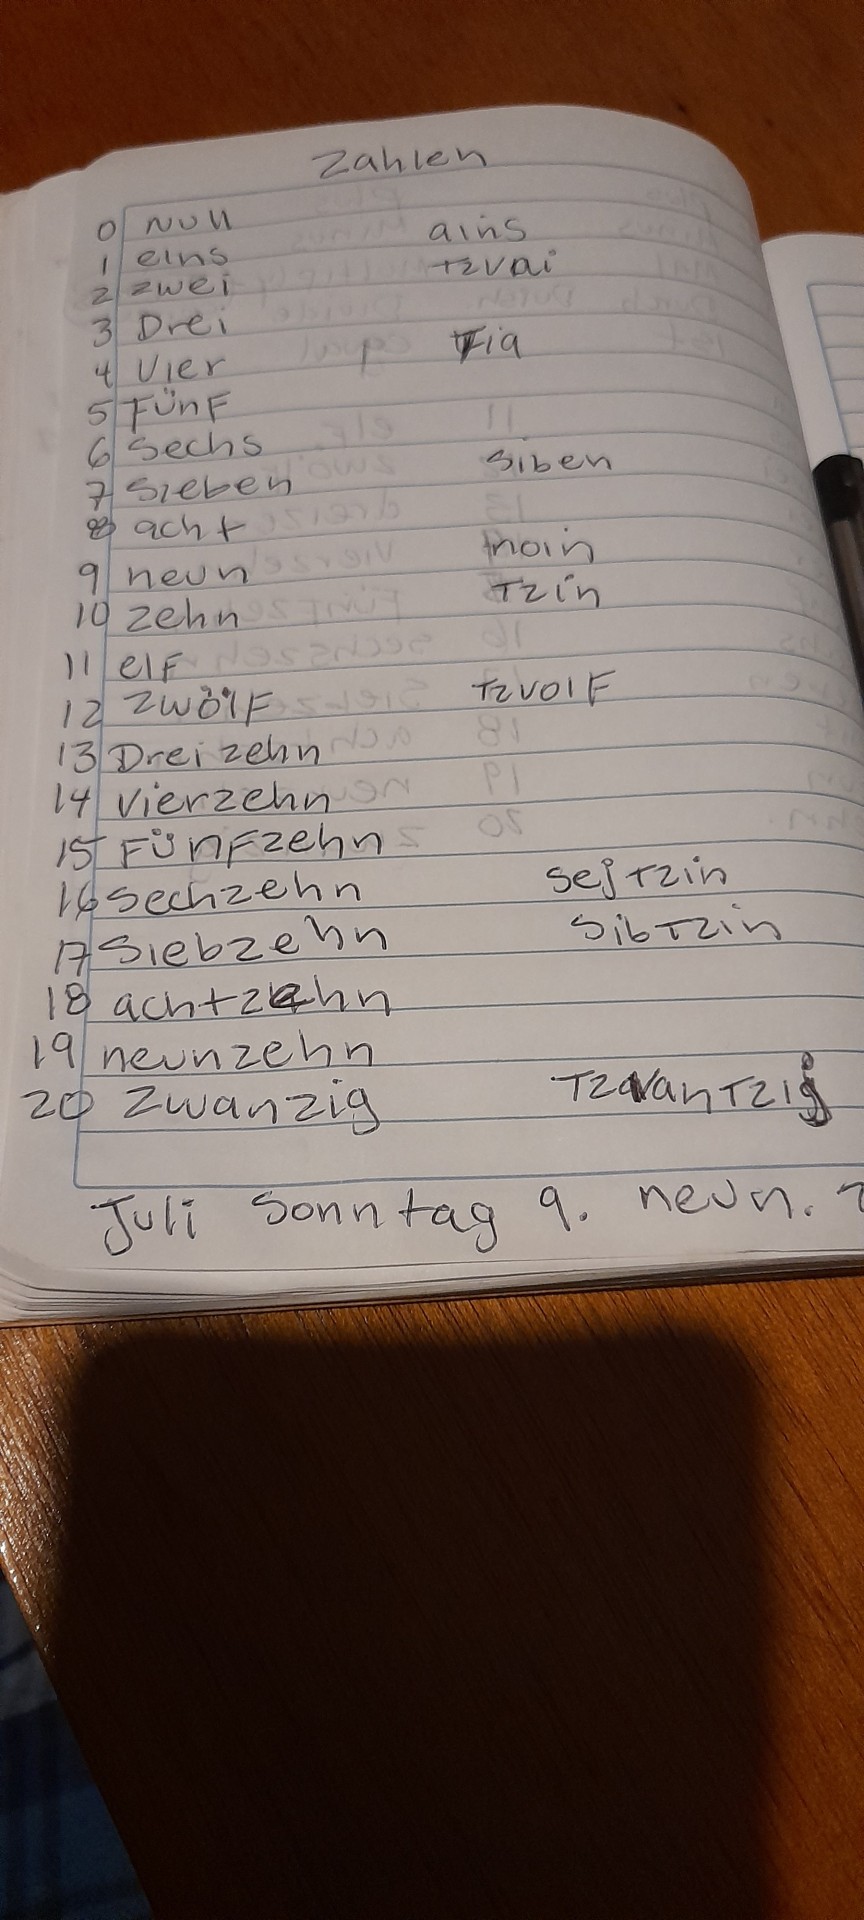 Zahlen
0 Null
1 eins ains
2 zwei tzvai
3 Drei
4 Vier Fia
5 FünF
6 Sechs
7 Sieben siben
8 acht
9 neun noin
10 zehn Tzin
11 elF
12 ZwölF tzvolF
13 Dreizehn
14 Vierzehn
15 FünFzehn
16 Sechzehn sejtzin
17 Siebzehn sibTzin
18 achtzehn
19 neunzehn
20 Zwanzig TzvanTzig
Juli Sonntag 9. neun.